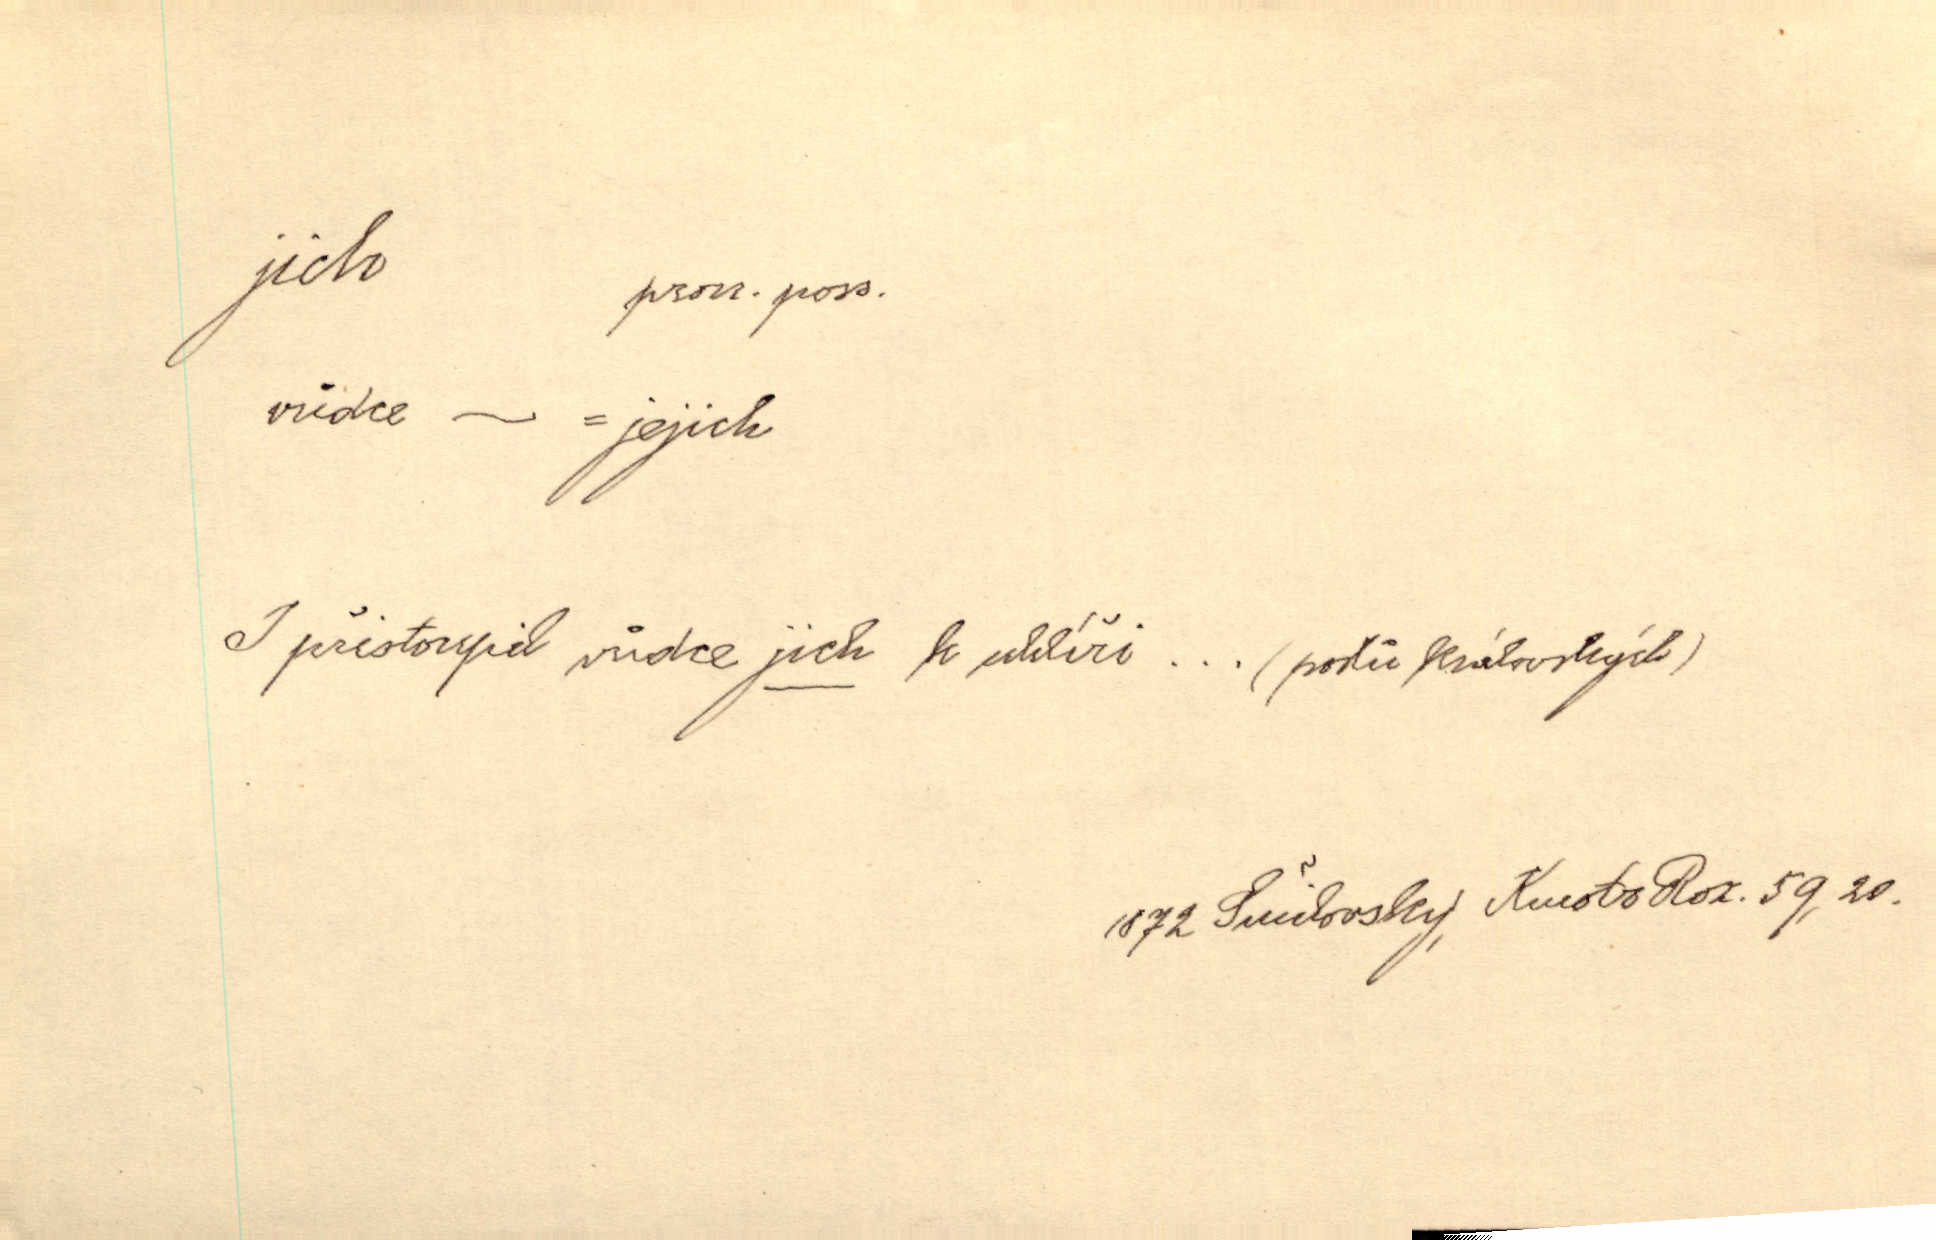 jich
pron. poss.
vůdce ~ = jejich
I přistoupil vůdce jich k uhlíři ... (poslů královských)
1872 Šmilovský, Kmotr Roz. 59, 20.